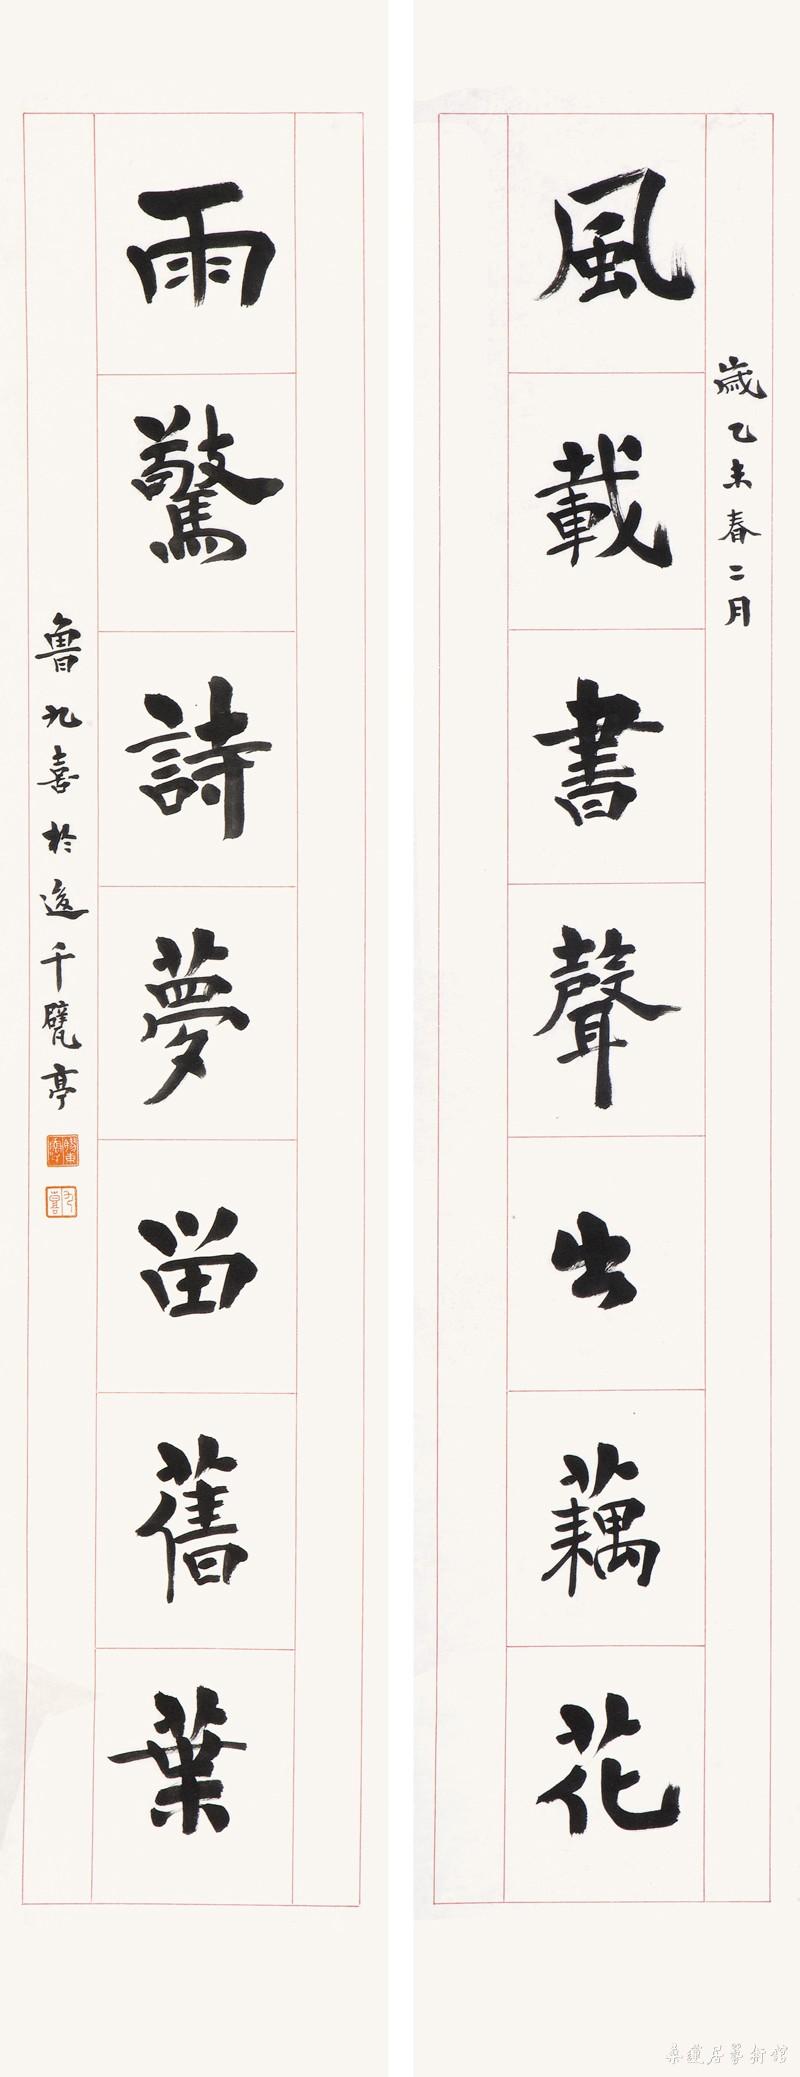 風載書聲出藕花
歲乙未春二月
雨驚詩夢留舊葉
魯九喜於後千甓亭
九喜
桑蓮居藝術館